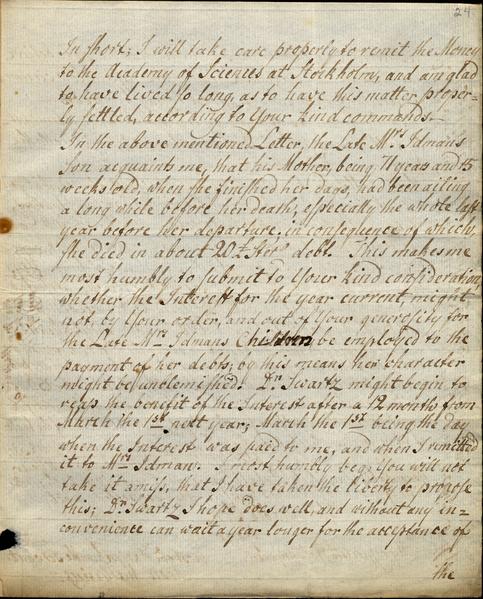 24
In short, I will take care properly to remit the Money
to the Academy of Sciences at Stockholm, and am glad
to have lived so long, as to have this matter proper=
ly settled, according to Your kind commands.—
In the above mentioned Letter, the Late Mrs. Idman's
Son acquaints me, that his Mother, being 71 years and 15
weeks old, when she finished her days, had been ailing
a long while before her death, especially the whole last
year before her departure, in consequence of which,
she died in about 20 £ Str. debt. This makes me
most humbly to submit to Your kind consideration,
whether the Interest for the year current, might
not, by Your order, and out of Your generosity for
the Late Mrs. Idmans Children be employed to the
payment of her debts; by this means her character
might be unblemished. Dr. Swartz might begin to
reap the benefit of the Interest after a 12 month from
March the 1st next year; March the 1st being the day
when the Interest was paid to me, and when I remitted
it to Mrs. Idman. I most humbly beg, You will not
take it amiss, that I have taken the liberty to propose
this; Dr. Swartz I hope does well, and without any in=
convenience can wait a year longer for the acceptance of
the